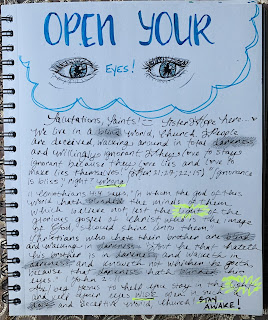 OPEN YOUR
EYES!
Salutations, Saints! Sister Hope here...
"We live in a blind world, Church. People
are deceived, walking around in total darkness
and willingly ignorant. They love to stay
ignorant because they love lies and love to
make lies themselves! 22:15) "Ignorance
is bliss", right? wrong!
Corinthians 4:4 says, "In whom the god of this
world hath blinded the minds of them
which believe not, lest the light of the
glorious gospel of Christ, who is the image
of God, should shine unto them."
Christians who hate their brother
and walking in darkness. "But he that hateth
his brother is in darkness, and walketh in
darkness, and knoweth not whither he goeth,
because that darkness hath blinded
his eyes." 1 John 2:11
to tell you stay in
and eyes open in
and deceitful world, Church!
STAY
AWAKE!